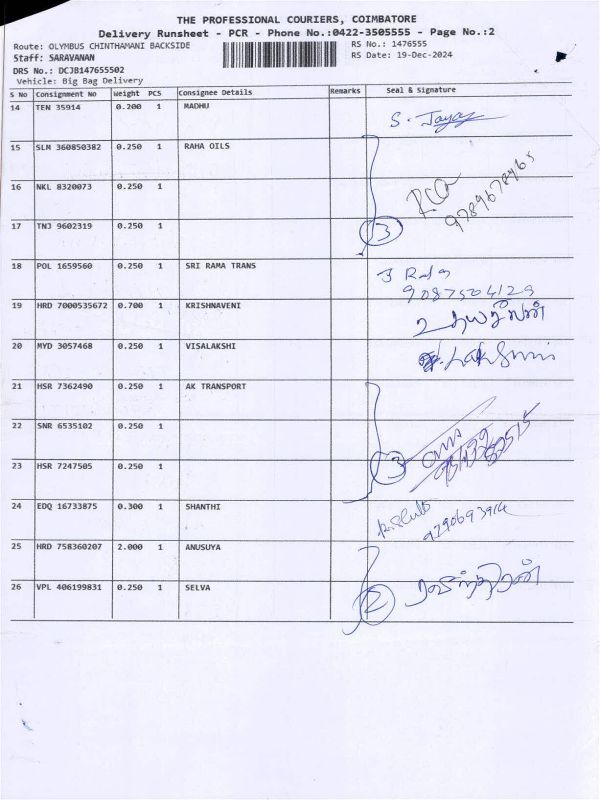 THE PROFESSIONAL COURIERS, COIMBATORE
Delivery Runsheet - PCR - Phone No.:0422-3505555 - Page No.:2
Route: OLYMBUS CHINTHAMANI BACKSIDE RS No.: 1476555
Staff: SARAVANAN RS Date: 19-Dec-2024
DRS No.: DCJB147655502
Vehicle: Big Bag Delivery
S No Consignment No Weight PCS Consignee Details Remarks Seal & Signature
14 TEN 35914 0.200 1 MADHU S. Jaya
15 SLM 360850382 0.250 1 RAHA OILS
16 NKL 8320073 0.250 1
9789678465
17 TNJ 9602319 0.250 1 3
18 POL 1659560 0.250 1 SRI RAMA TRANS
9087504129
19 HRD 7000535672 0.700 1 KRISHNAVENI உதயசீலன்
20 MYD 3057468 0.250 1 VISALAKSHI
21 HSR 7362490 0.250 1 AK TRANSPORT
22 SNR 6535102 0.250 1
23 HSR 7247505 0.250 1 3
24 EDQ 16733875 0.300 1 SHANTHI
9790693914
25 HRD 758360207 2.000 1 ANUSUYA
26 VPL 406199831 0.250 1 SELVA 2